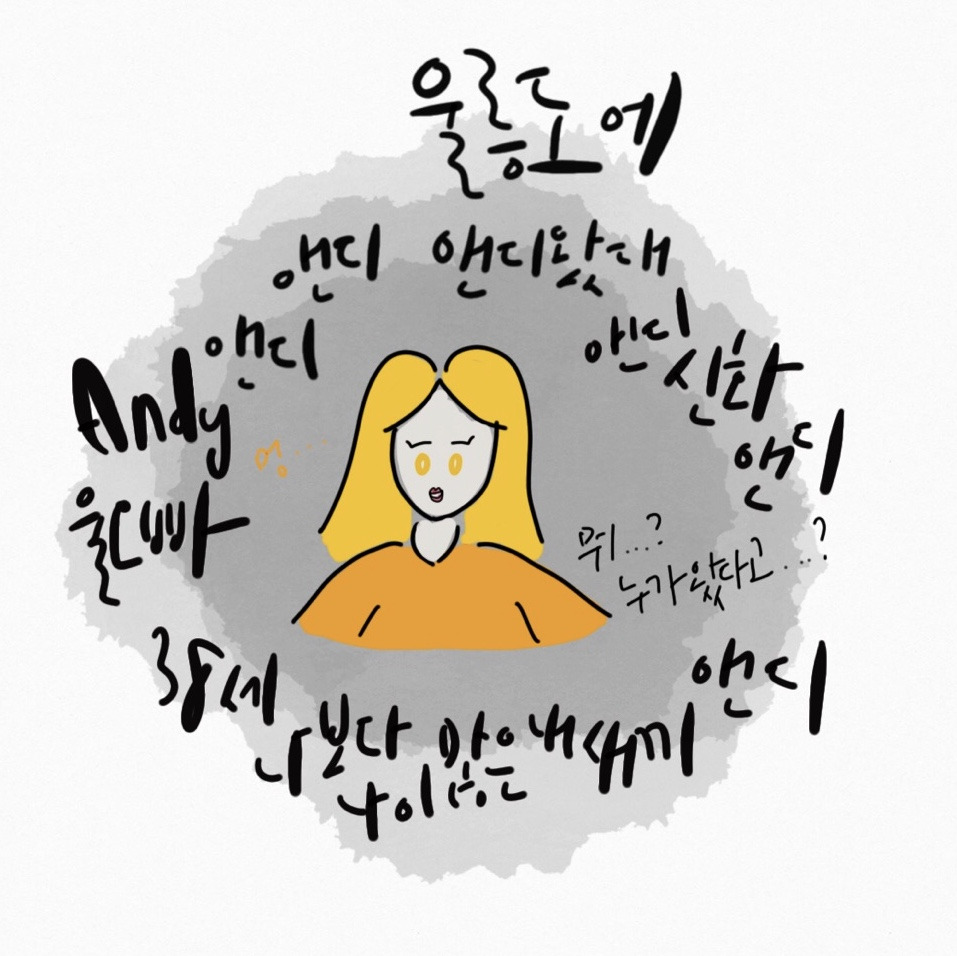 울릉도에
앤디 앤디왔대
앤디
앤디
신화
Andy
앤디
멍....
울오빠
뭐...?
누가왔다고....?
38세
앤디
나보다
나이 많은 내새끼